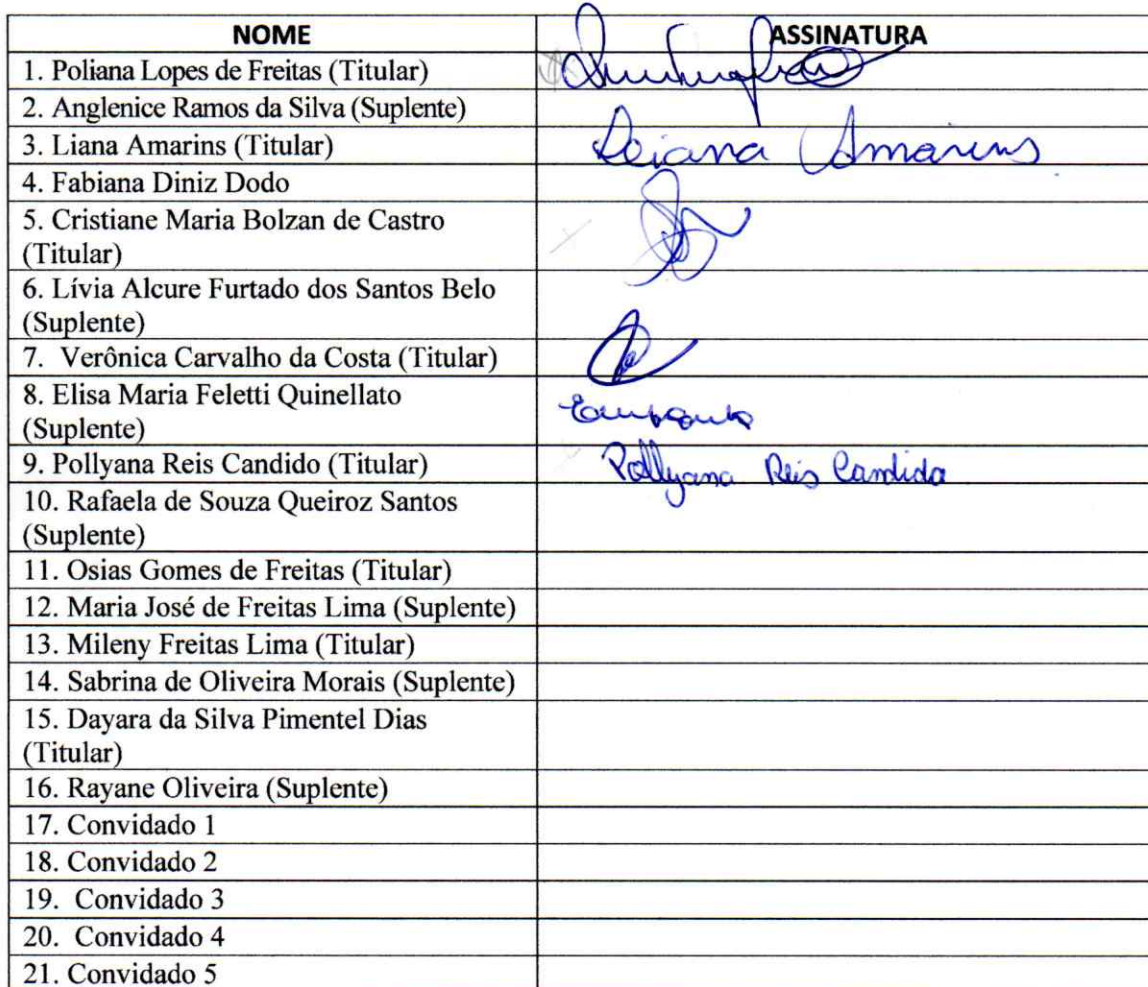 NOME ASSINATURA
1. Poliana Lopes de Freitas (Titular)
2. Anglenice Ramos da Silva (Suplente)
3. Liana Amarins (Titular) Leiana Amarins
4. Fabiana Diniz Dodo
5. Cristiane Maria Bolzan de Castro
(Titular)
6. Lívia Alcure Furtado dos Santos Belo
(Suplente)
7. Verônica Carvalho da Costa (Titular)
8. Elisa Maria Feletti Quinellato
(Suplente)
9. Pollyana Reis Candido (Titular) Pollyana Reis Candido
10. Rafaela de Souza Queiroz Santos
(Suplente)
11. Osias Gomes de Freitas (Titular)
12. Maria José de Freitas Lima (Suplente)
13. Mileny Freitas Lima (Titular)
14. Sabrina de Oliveira Morais (Suplente)
15. Dayara da Silva Pimentel Dias
(Titular)
16. Rayane Oliveira (Suplente)
17. Convidado 1
18. Convidado 2
19. Convidado 3
20. Convidado 4
21. Convidado 5